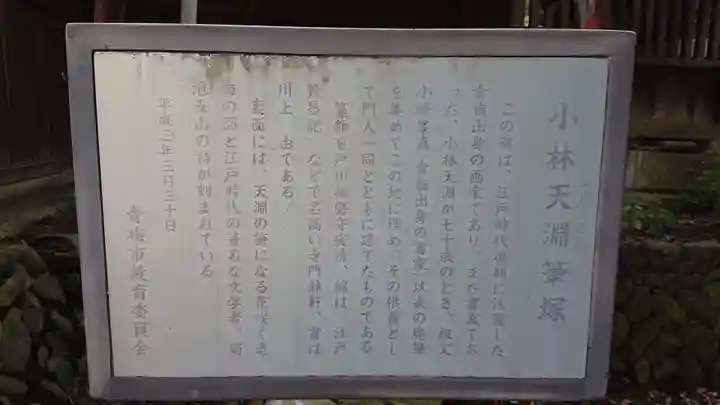 小林天淵筆塚
この碑は、江戸時代後期に活躍した
青梅出身の画家であり、また書家でも
った、小林天淵が七十歳のとき、祖父
小林 青梅出身の書家 以来の廃筆
を集めてこの地に埋め、その供養とし
て門人一同とともに建てたものである
篆額は戸川播磨守安清、銘は、江戸
繁昌記 などで名高い寺門静軒、書は
川上 由である。
裏面には、天淵の筆になる花咲く老
梅の図と江戸時代の著名な文学者、菊
池五山の詩が刻まれている
平成二年三月三十日
青梅市教育委員会